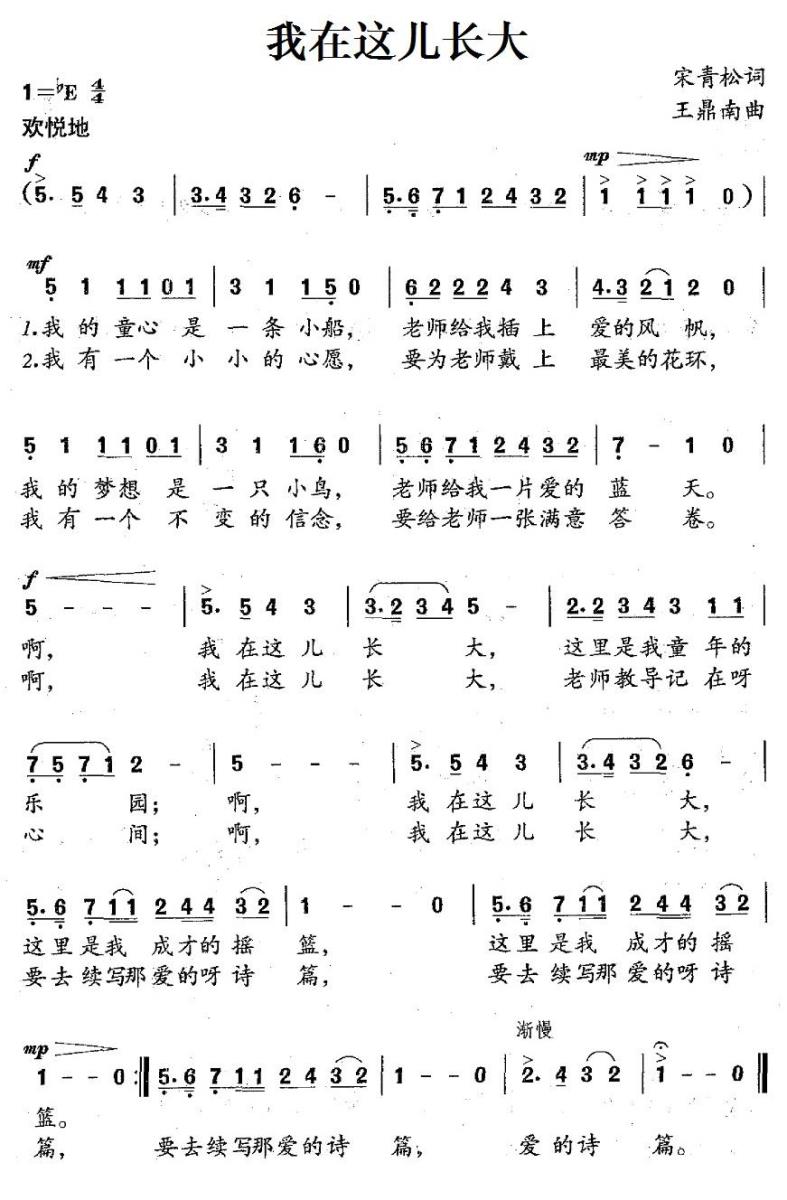 我在这儿长大
1=♭E 4/4
宋青松词
欢悦地
王鼎南曲
f mp
(5. 5 4 3 | 3.4 3 2 6 - | 5.6 7 1 2 4 3 2 | 1 1 1 1 0 ) |
mf
5 1 1 1 0 1 | 3 1 1 5 0 | 6 2 2 2 4 3 | 4.3 2 1 2 0 |
1.我 的 童心 是 一 条 小船， 老师给我插 上 爱的风 帆，
2.我 有 一个 小 小 的 心愿， 要为老师戴 上 最美的花环，
5 1 1 1 0 1 | 3 1 1 6 0 | 5 6 7 1 2 4 3 2 | 7 - 1 0 |
我 的 梦想 是 一 只 小鸟， 老师给我一片爱的 蓝 天。
我 有 一个 不 变 的 信念， 要给老师一张满意 答 卷。
f
5 - - - | 5. 5 4 3 | 3.2 3 4 5 - | 2.2 3 4 3 1 1 |
啊， 我 在这 儿 长 大， 这里是我童 年的
啊， 我 在这 儿 长 大， 老师教导记 在呀
7 5 7 1 2 - | 5 - - - | 5. 5 4 3 | 3.4 3 2 6 - |
乐 园； 啊， 我 在这 儿 长 大，
心 间； 啊， 我 在这 儿 长 大，
5.6 7 1 1 2 4 4 3 2 | 1 - - 0 | 5.6 7 1 1 2 4 4 3 2 |
这里是我 成才的摇 篮， 这里是我 成才的摇
要去续写那爱的呀诗 篇， 要去续写那爱的呀诗
mp 渐慢
1 - - 0 :‖ 5.6 7 1 1 2 4 3 2 | 1 - - 0 | 2. 4 3 2 | 1 - - 0 ‖
篮。
篇， 要去续写那爱的诗 篇， 爱 的诗 篇。